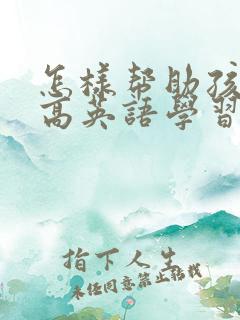 怎樣帮助孩
高英語學習
指下人生
未经同意禁止转载